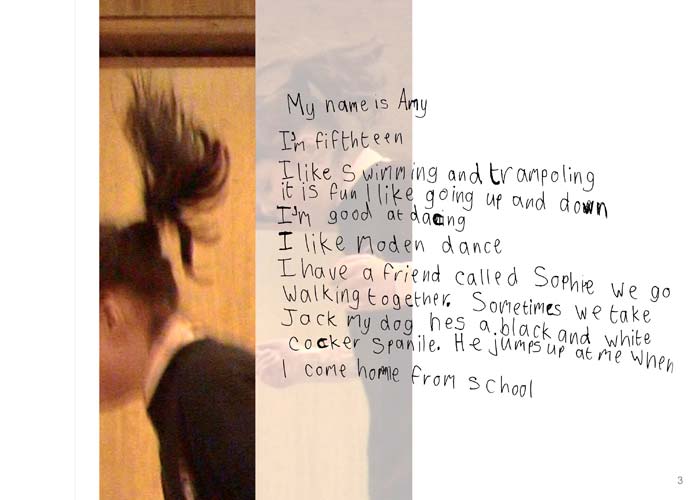 My name is Amy
I'm fifthteen
I like swimming and trampoling
it is fun I like going up and down
I'm good at dacing
I like Moden dance
I have a friend called Sophie we go
walking together. Sometimes we take
Jack my dog, hes a black and white
cocker spanile. He jumps up at me when
I come home from school
3